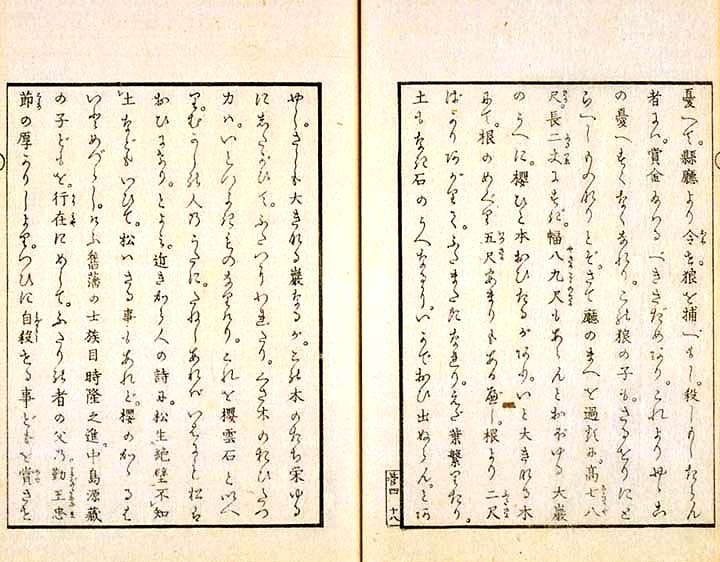 憂へて。縣廳より令を狼を捕へもし。殺しもしたらん
者には。賞金あるべきさだめあり。これよりやゝこ
の憂へすくなくなれり。この狼の子も。さるをりにと
らへしものなりとぞ。さて廳のまへを過るに。高七八
尺。長二丈にちかく。幅八九尺もあらんとおぼゆる大巖
のうへに。櫻ひと本おひたるがあり。いと大きなる木
にて。根のめぐり五尺あまりもある。根より二尺
ばかりありて。ふたまたになれり。えだ葉繁りたり。
土もなき石のうへなるに。いかでおひ出ぬらん。とあ
巻四 十八
やし。さしも大きなる巖なるが。この木のたち栄ゆる
にしたがひて。ふたつにわれたり。くさ木のおひたつ
力ハ。いといみじきものなりけり。これを櫻雲石といへ
り。むかしの人のうたに。たねしあれバいはにも松は
おひにけり。とよみ。近きから人の詩に。松生絶壁不知
土などもいひて。松ハさる事もあれど。櫻のかゝるは
いとめづらし。けふ舊藩の士族目時隆之進。中島源藏
の子どもを。行在にめして。ふたりの者の父の勤王忠
節の厚かりしより。つひに自殺せる事どもを賞させ